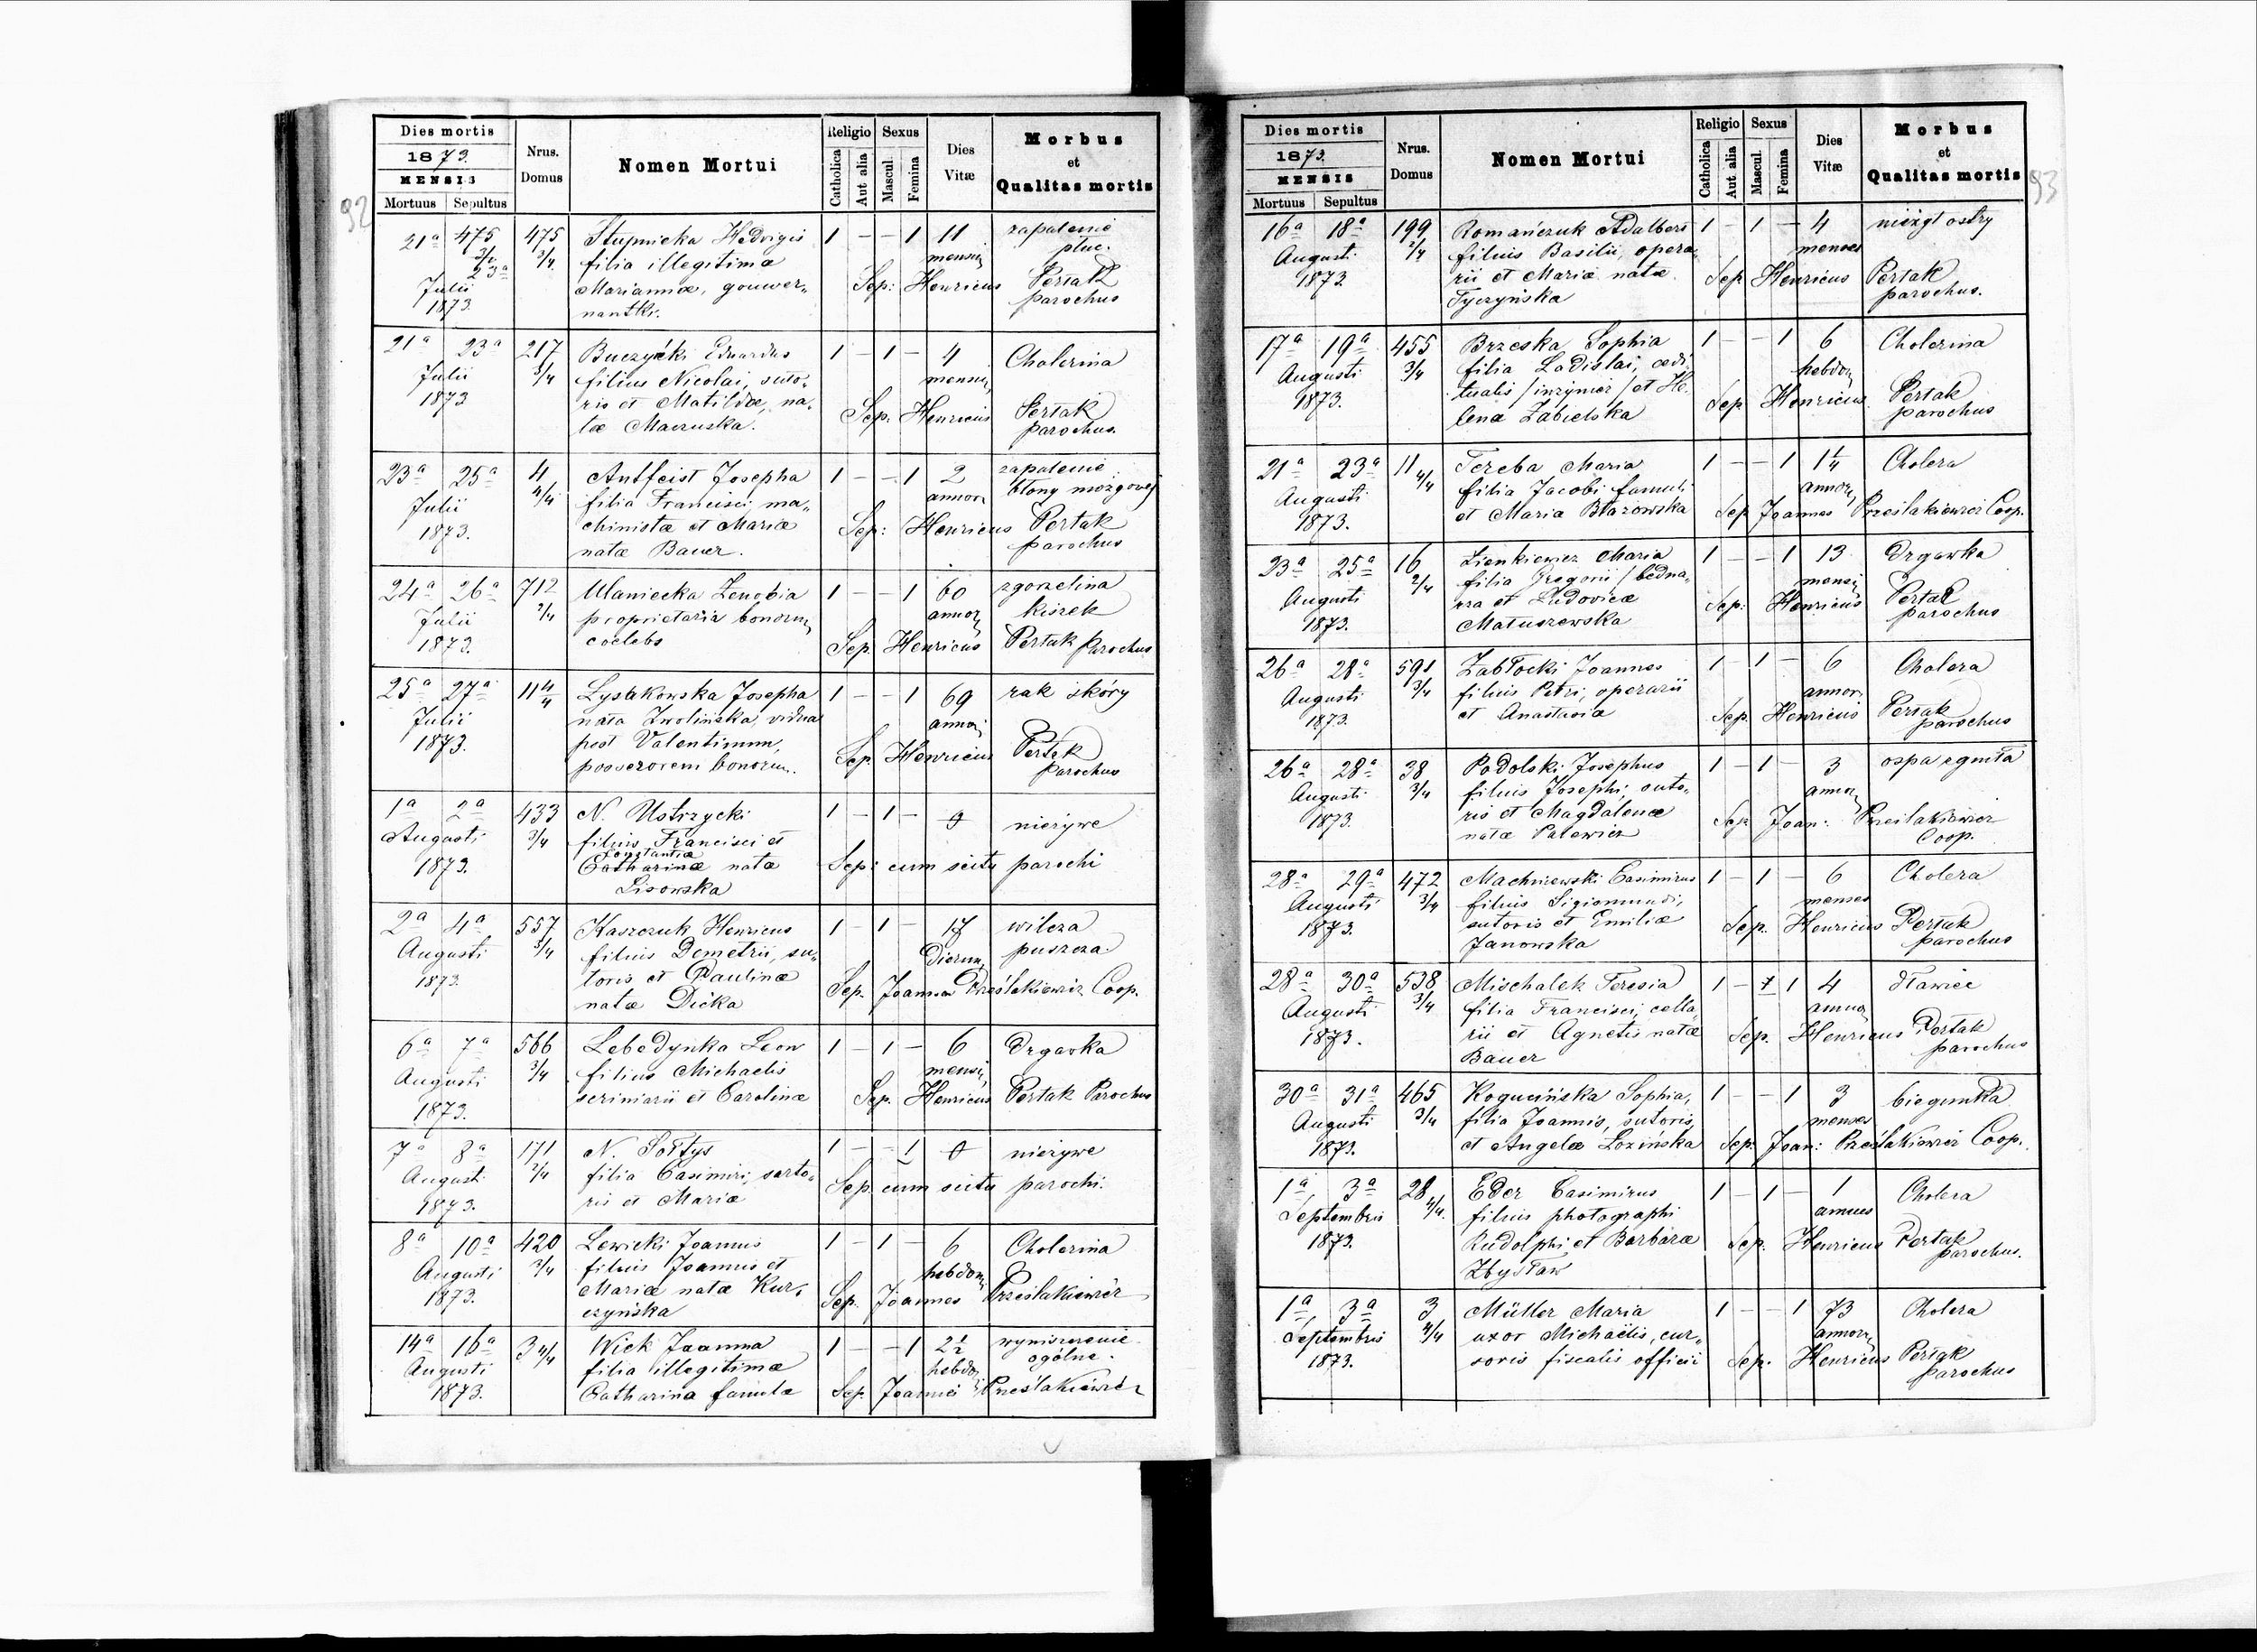 92
Dies mortis
1873.
MENSIS
Mortuus Sepultus
Nrus. Domus
Nomen Mortui
Religio
Catholica
Aut alia
Sexus
Mascul.
Femina
Dies Vitæ
Morbus
et
Qualitas mortis
21ª 475 475 Stupnicka Hedvigis 1 – – 1 11 zapalenie
3/4 3/4 filia illegitima mensiū płuc.
23ª Mariannæ, gouver„ Sep: Henricus Pertak
Julii nantki. parochus
1873.
21ª 23ª 217 Buczyński Eduardus 1 – 1 – 4 Cholerina
Julii 3/4 filius Nicolai, suto„ mensiū
1873 ris et Matildæ, na„ Sep. Henricus Pertak
tæ Mazruska. parochus.
23ª 25ª 4 Antfeist Josepha 1 – – 1 2 zapalenie
Julii 4/4 filia Francisci, ma„ annor. błony mózgowej
1873. chinistæ et Mariæ Sep: Henricus Pertak
natæ Bauer. parochus
24ª 26ª 712 Ulaniecka Zenobia 1 – – 1 60 zgorzelina
Julii 2/4 proprietaria bonorum, annor. kiszek
1873. coelebs Sep. Henricus Pertak parochus
25ª 27ª 11 4/4 Lysakowska Josepha 1 – – 1 69 rak skóry
Julii nata Zwolińska, vidua annor.
1873. post Valentinum, Sep. Henricus Pertak
possesorem bonorum. parochus
1ª 2ª 433 N. Ustrzycki 1 – 1 – 0 nieżywe
Augusti 3/4 filius Francisci et
1873. Constantiæ
Catharinæ natæ Sep: cum scitu parochi
Lisowska
2ª 4ª 557 Kaszczuk Henricus 1 – 1 – 17 wilcza
Augusti 3/4 filius Demetrii, su„ Dierum, puszcza.
1873. toris et Paulinæ Sep. Joannes Prześlakiewicz Coop.
natæ Dicka
6ª 7ª 566 Lebedynka Leon 1 – 1 – 6 Drgavka
Augusti 3/4 filius Michaelis mensiū
1873. scriniarii et Carolinæ Sep. Henricus Pertak Parochus
7ª 8ª 171 N. Sołtys 1 – – 1 0 nieżywe
August. 2/4 filia Casimiri, sarto„
1873. ris et Mariæ Sep. cum scitu parochi.
8ª 10ª 420 Lewicki Joannes 1 – 1 – 6 Cholerina
Augusti 3/4 filius Joannis et hebdom.
1873. Mariæ natæ Kur„ Sep. Joannes Prześlakiewicz
czyńska
14ª 16ª 3 4/4 Wick Joanna 1 – – 1 2½ wyniszczenie
Augusti filia illegitimæ hebdo. ogólne.
1873. Catharina famulæ Sep. Joannes Prześlakiewicz
93
Dies mortis
1873.
MENSIS
Mortuus Sepultus
Nrus. Domus
Nomen Mortui
Religio
Catholica
Aut alia
Sexus
Mascul.
Femina
Dies Vitæ
Morbus
et
Qualitas mortis
16ª 18ª 199 Romańczuk Adalbert 1 – 1 – 4 nieżyt ostry
Augusti 2/4 filius Basilii, opera„ menses
1873. rii et Mariæ natæ Sep Henricus Pertak
Tyczyńska parochus.
17ª 19ª 455 Brzeska Sophia 1 – – 1 6 Cholerina
Augusti 3/4 filia Ladislai, ædi„ hebdom.
1873. tualis /inżynier/ et He„ Sep Henricus Pertak
lena Zabielska parochus
21ª 23ª 11 4/4 Tereba Maria 1 – – 1 1¼ Cholera
Augusti filia Jacobi famuli annor.
1873. et Maria Błazowska Sep Joannes Prześlakiewicz Coop.
23ª 25ª 16 Zienkiewicz Maria 1 – – 1 13 Drgawka
Augusti 2/4 filia Gregorii /bedna„ mensiū
1873. rza et Ludovicæ Sep: Henricus Pertak
Matuszewska parochus
26ª 28ª 591 Zabłocki Joannes 1 – 1 – 6 Cholera
Augusti 3/4 filius Petri, operarii annor.
1873. et Anastasia Sep. Henricus Pertak
parochus
26ª 28ª 38 Podolski Josephus 1 – 1 – 3 ospa zgniła
Augusti 3/4 filius Josephi, suto„ annor.
1873. ris et Magdalenæ Sep. Joan: Prześlakiewicz
natæ Palewicz Coop.
28ª 29ª 472 Machniewski Casimirus 1 – 1 – 6 Cholera
Augusti 3/4 filius Sigismundi, menses
1873. sutoris et Emiliæ Sep. Henricus Pertak
Janowska parochus
28ª 30ª 538 Mischalek Teresia 1 – 1 4 dławiec
Augusti 3/4 filia Francisci, cella„ annor.
1873. rii et Agnetis natæ Sep. Henricus Pertak
Bauer parochus
30ª 31ª 465 Rogucińska Sophia, 1 – – 1 3 biegunka
Augusti 3/4 filia Joannis, sutoris, menses
1873. et Angelæ Łozińska Sep: Joan: Prześlakiewicz Coop.
1ª 3ª 28 Eder Casimirus 1 – 1 – 1 Cholera
Septembris 4/4. filius photographi annus
1873. Rudolphi et Barbaræ Sep. Henricus Pertak
Zbysław parochus.
1ª 3ª 3 Müller Maria 1 – – 1 73 Cholera
Septembris 4/4 uxor Michaëlis, cur„ annorū
1873. soris fiscalis officii Sep. Henricus Pertak
parochus